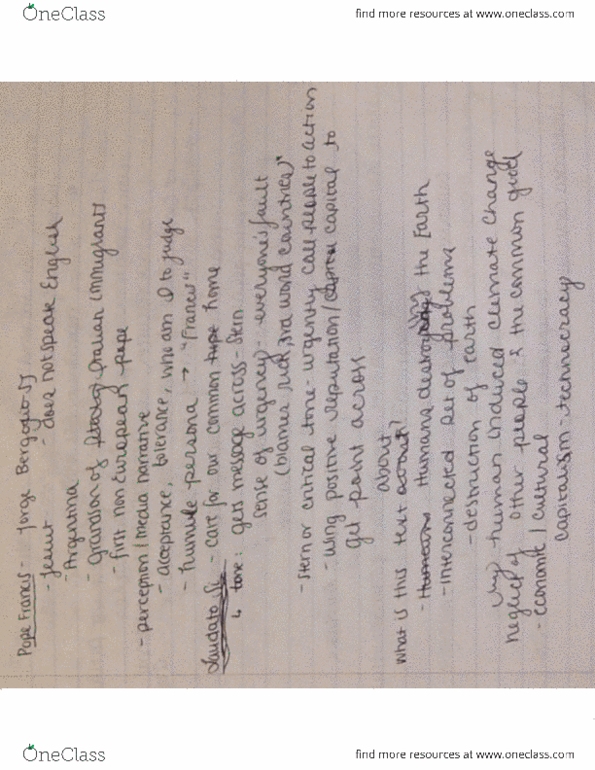 OneClass
find more resources at www.oneclass.com
Pope Francis - Jorge Bergoglio SJ
- Jesuit - does not speak English
- Argentina
- Grandson of Italian immigrants
- first non European pope
- perception/media narrative
- acceptance, tolerance, who am I to judge
- humble persona → "Francis"
Laudato Si - care for our common home
↳ tone: gets message across - stern
sense of urgency - everyone's fault
(blames rich, 3rd world countries)"
- stern or critical tone - urgently call people to action
- using positive reputation/ capital to
get point across
What is this text about?
- Humans destroying the Earth
- interconnected set of problems
- destruction of earth
human induced climate change
neglect of other people & the common good
- economic/cultural
capitalism - technocracy
OneClass
find more resources at www.oneclass.com